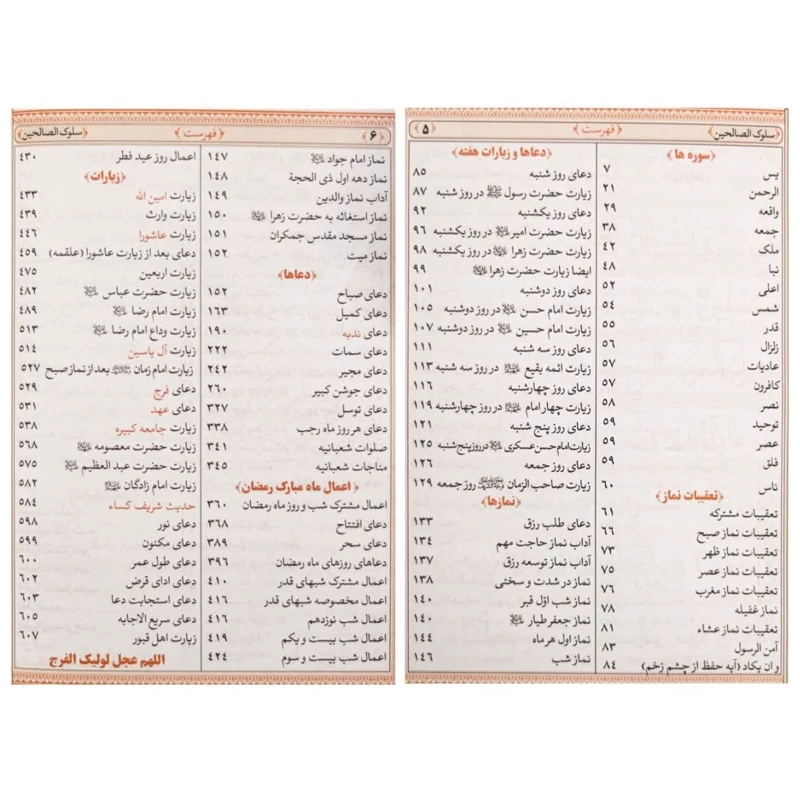 ﴿سلوک الصالحین﴾ ﴿فهرست﴾ ﴿۵﴾
﴿سوره ها﴾
یس ۷
الرحمن ۲۱
واقعه ۲۹
جمعه ۳۸
ملک ۴۲
نبا ۴۸
اعلی ۵۲
شمس ۵۴
قدر ۵۵
زلزال ۵۶
عادیات ۵۷
کافرون ۵۷
نصر ۵۸
توحید ۵۹
عصر ۵۹
فلق ۵۹
ناس ۶۰
﴿تعقیبات نماز﴾
تعقیبات مشترکه ۶۱
تعقیبات نماز صبح ۶۶
تعقیبات نماز ظهر ۷۳
تعقیبات نماز عصر ۷۵
تعقیبات نماز مغرب ۷۶
نماز غفیله ۷۸
تعقیبات نماز عشاء ۸۱
آمن الرسول ۸۳
و ان یکاد (آیه حفظ از چشم زخم) ۸۴
﴿دعاها و زیارات هفته﴾
دعای روز شنبه ۸۵
زیارت حضرت رسول ﷺ در روز شنبه ۸۷
دعای روز یکشنبه ۹۲
زیارت حضرت امیر در روز یکشنبه ۹۶
زیارت حضرت زهرا در روز یکشنبه ۹۸
ایضا زیارت حضرت زهرا ۹۹
دعای روز دوشنبه ۱۰۱
زیارت امام حسن در روز دوشنبه ۱۰۵
زیارت امام حسین در روز دوشنبه ۱۰۷
دعای روز سه شنبه ۱۱۱
زیارت ائمه بقیع در روز سه شنبه ۱۱۳
دعای روز چهارشنبه ۱۱۶
زیارت چهار امام در روز چهارشنبه ۱۱۹
دعای روز پنج شنبه ۱۲۱
زیارت امام حسن عسکری در روز پنج شنبه ۱۲۵
دعای روز جمعه ۱۲۶
زیارت صاحب الزمان روز جمعه ۱۲۹
﴿نمازها﴾
دعای طلب رزق ۱۳۳
آداب نماز حاجت مهم ۱۳۴
آداب نماز توسعه رزق ۱۳۷
نماز در شدت و سختی ۱۳۸
نماز شب اوّل قبر ۱۴۰
نماز جعفر طیار ۱۴۰
نماز اول هر ماه ۱۴۴
نماز شب ۱۴۶
﴿۶﴾ ﴿فهرست﴾ ﴿سلوک الصالحین﴾
نماز امام جواد ۱۴۷
نماز دهه اول ذی الحجة ۱۴۸
آداب نماز والدین ۱۴۹
نماز استغاثه به حضرت زهرا ۱۵۰
نماز مسجد مقدس جمکران ۱۵۱
نماز میت ۱۵۲
﴿دعاها﴾
دعای صباح ۱۵۲
دعای کمیل ۱۶۳
دعای ندبه ۱۹۰
دعای سمات ۲۲۲
دعای مجیر ۲۴۲
دعای جوشن کبیر ۲۶۰
دعای توسل ۳۲۷
دعای هر روز ماه رجب ۳۳۸
صلوات شعبانیه ۳۴۱
مناجات شعبانیه ۳۴۵
﴿اعمال ماه مبارک رمضان﴾
اعمال مشترک شب و روز ماه رمضان ۳۶۰
دعای افتتاح ۳۶۸
دعای سحر ۳۸۹
دعاهای روزهای ماه رمضان ۳۹۶
اعمال مشترک شبهای قدر ۴۱۰
اعمال مخصوصه شبهای قدر ۴۱۶
اعمال شب نوزدهم ۴۱۶
اعمال شب بیست و یکم ۴۱۹
اعمال شب بیست و سوم ۴۲۴
اعمال روز عید فطر ۴۳۰
﴿زیارات﴾
زیارت امین الله ۴۳۳
زیارت وارث ۴۳۹
زیارت عاشورا ۴۴۶
دعای بعد از زیارت عاشورا (علقمه) ۴۵۹
زیارت اربعین ۴۷۵
زیارت حضرت عباس ۴۸۲
زیارت امام رضا ۴۸۹
زیارت وداع امام رضا ۵۱۳
زیارت آل یاسین ۵۱۴
زیارت امام زمان بعد از نماز صبح ۵۲۷
دعای فرج ۵۲۹
دعای عهد ۵۳۱
زیارت جامعه کبیره ۵۳۸
زیارت حضرت معصومه ۵۶۸
زیارت حضرت عبد العظیم ۵۷۵
زیارت امام زادگان ۵۸۲
حدیث شریف کساء ۵۸۴
دعای نور ۵۹۸
دعای مکنون ۵۹۹
دعای طول عمر ۶۰۰
دعای ادای قرض ۶۰۲
دعای استجابت دعا ۶۰۳
دعای سریع الاجابه ۶۰۵
زیارت اهل قبور ۶۰۷
اللهم عجل لولیک الفرج